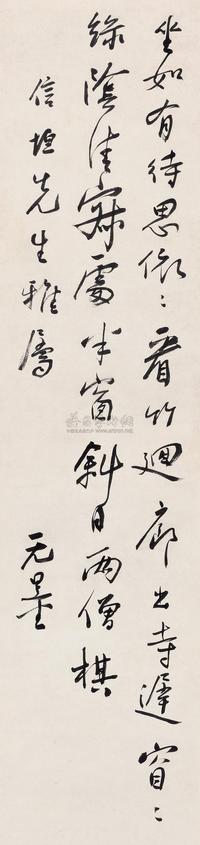 坐如有待思依〻看竹迴廊出寺遲窅〻
綠陰清寂處半窗斜日兩僧棋
信坦先生雅屬
无量